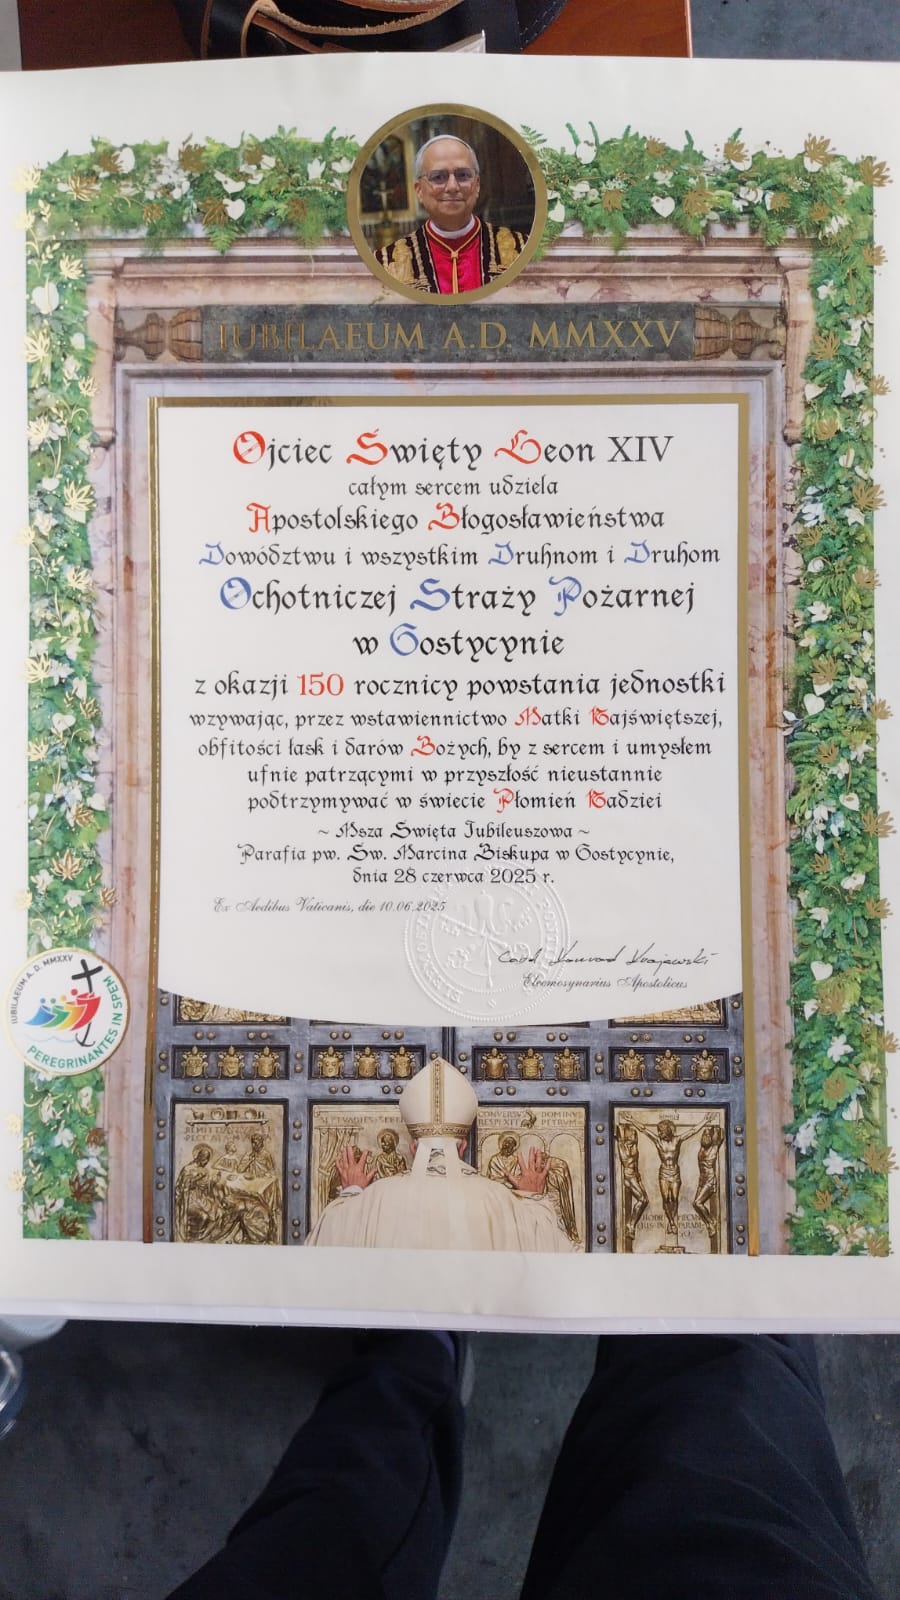 IUBILAEUM A.D. MMXXV
Ojciec Święty Leon XIV
całym sercem udziela
Apostolskiego Błogosławieństwa
Dowództwu i wszystkim Druhnom i Druhom
Ochotniczej Straży Pożarnej
w Gostycynie
z okazji 150 rocznicy powstania jednostki
wzywając, przez wstawiennictwo Matki Najświętszej,
obfitości łask i darów Bożych, by z sercem i umysłem
ufnie patrzącymi w przyszłość nieustannie
podtrzymywać w świecie Płomień Nadziei
~ Msza Święta Jubileuszowa ~
Parafia pw. Św. Marcina Biskupa w Gostycynie,
dnia 28 czerwca 2025 r.
Ex Aedibus Vaticanis, die 10.06.2025
Card Konrad Krajewski
Eleemosynarius Apostolicus
IUBILAEUM A. D. MMXXV
PEREGRINANTES IN SPEM
CONVERSUS DOMINUS
RESPEXIT PETRUM